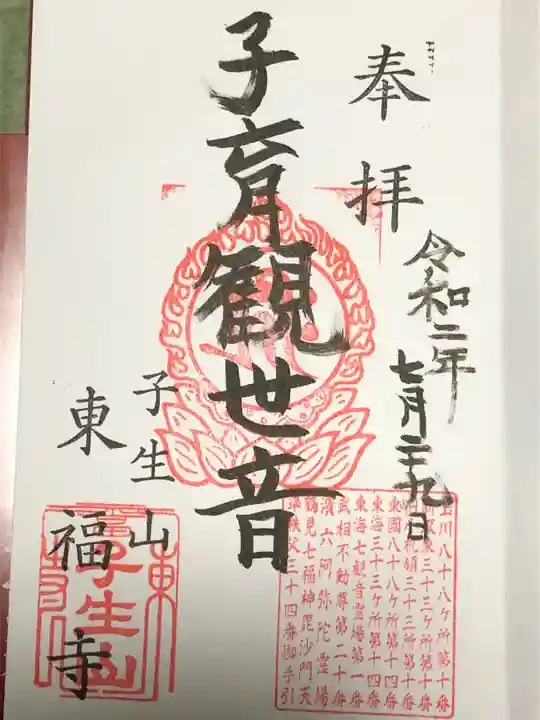 奉拝
令和二年
七月二十九日
子育観世音
子生山
東福寺
玉川八十八ヶ所第十番
東国八十八ヶ所第十四番
東海三十三ヶ所第十四番
東海七観音霊場第一番
武相不動尊第二十番
鶴見七福神毘沙門天
準秩父三十四番御手引
子生山